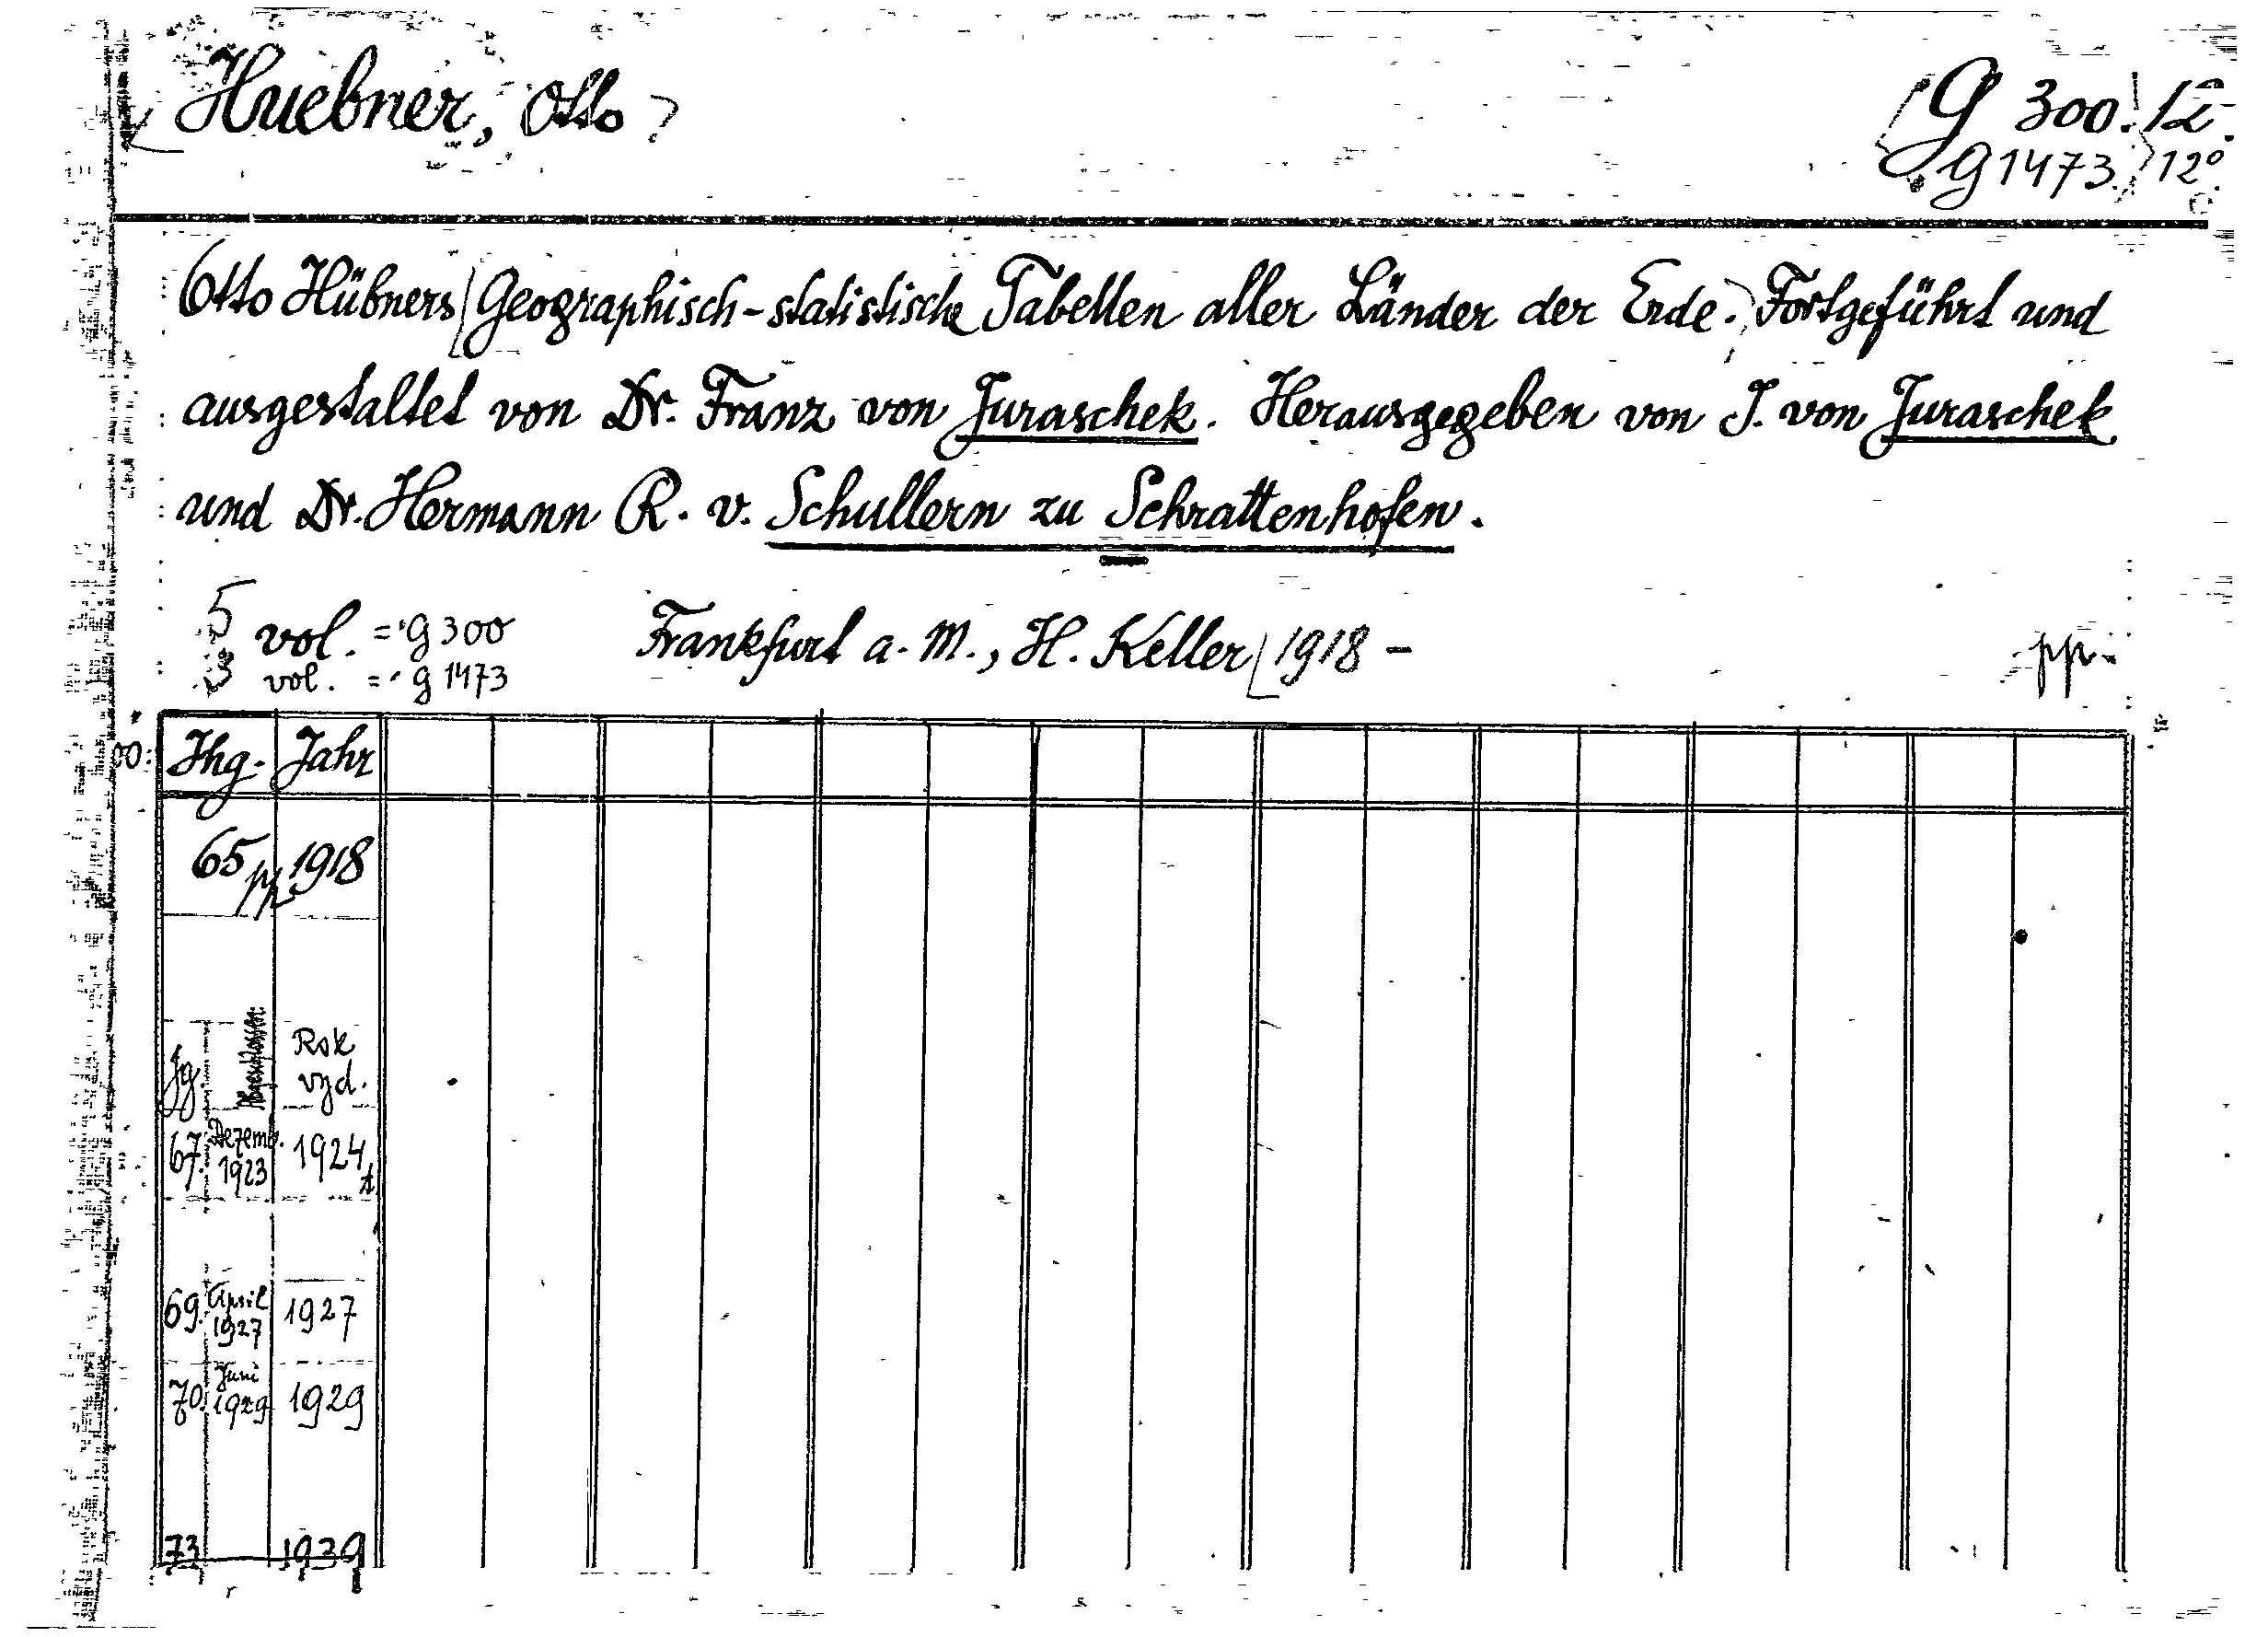 Huebner, Otto
G 300. 12.
G 1473. 12°
Otto Hübners Geographisch-statistische Tabellen aller Länder der Erde. Fortgeführt und
ausgestaltet von Dr. Franz von Juraschek. Herausgegeben von J. von Juraschek
und Dr. Hermann R. v. Schullern zu Schrattenhofen.
5 vol. = G 300 Frankfurt a. M., H. Keller 1918 - pp.
3 vol. = G 1473
Jhg. Jahr
65 pp. 1918
Jg. Abgeschlossen: Rok vyd.
67. Dezemb. 1923 1924
69. April 1927 1927
70. Juni 1929 1929
73 1939